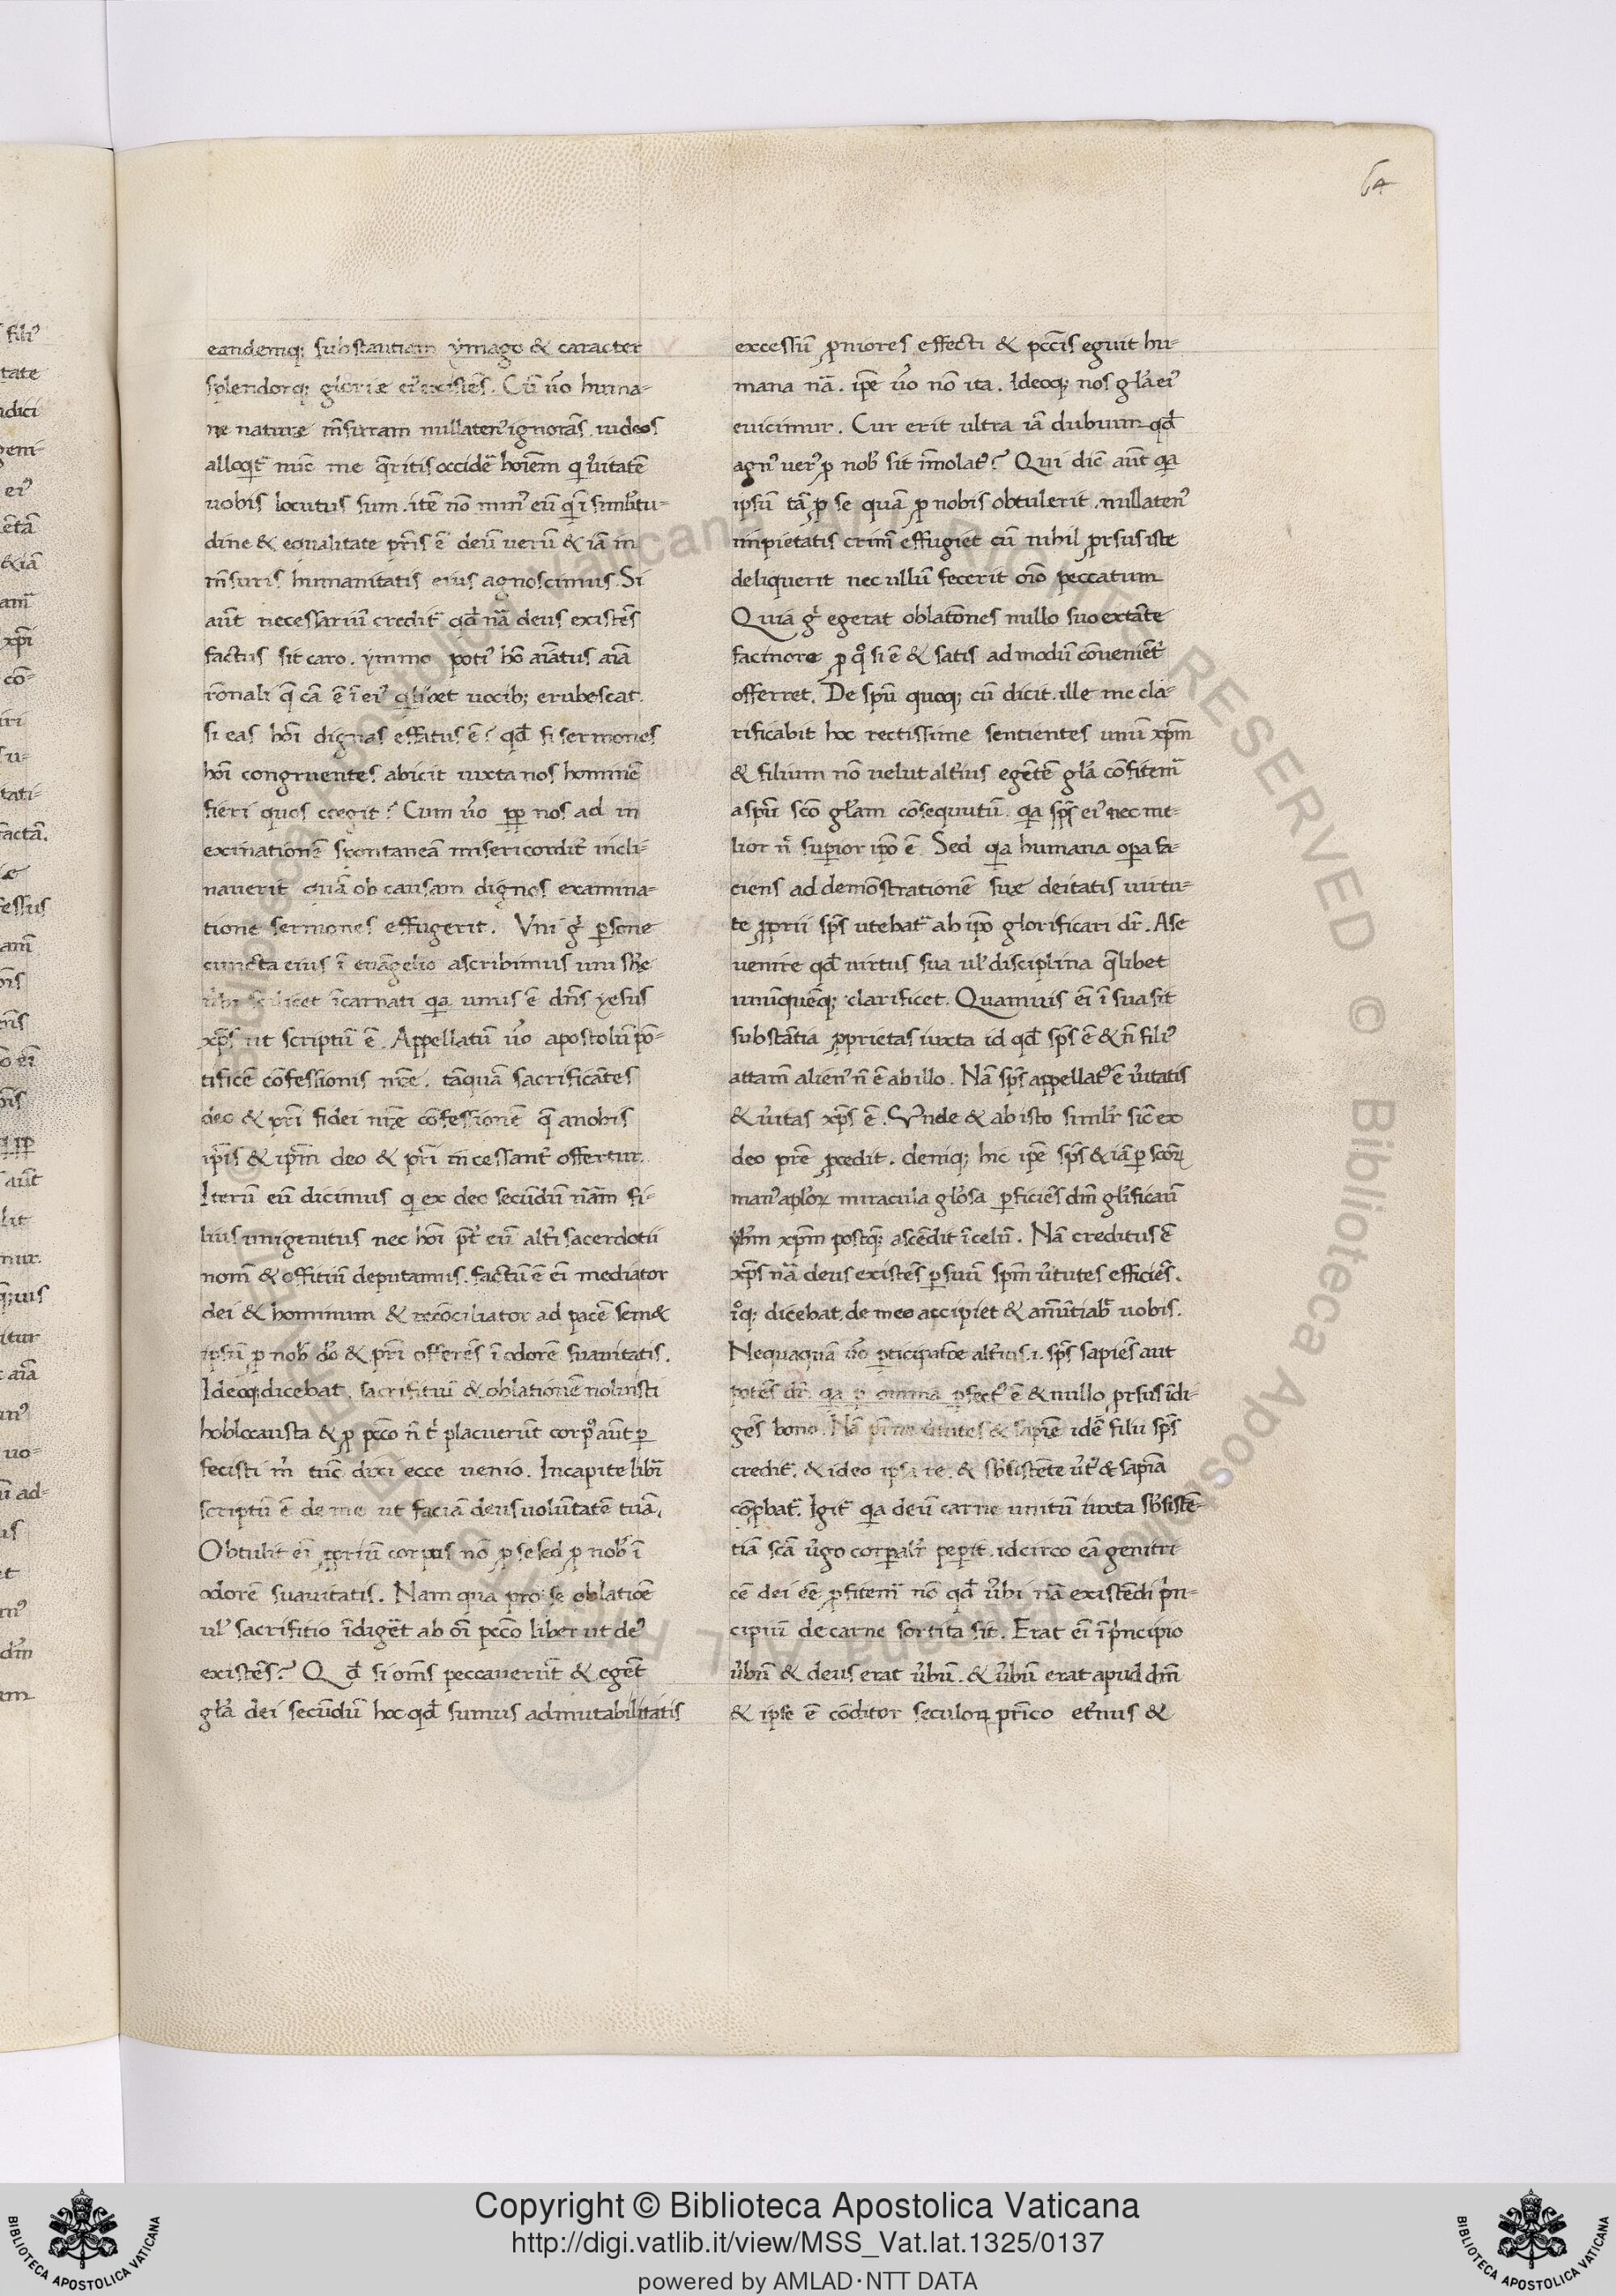 64
eandemq; substantiam ymago & caracter
splendorq; gloriæ ei᾽ existẽs. Cũ ṽo huma-
ne nature m̃suram nullaten᾽ ignorãs. iudeos
alloqt᷑ nũc me q̃ritis occidẽ hoı̃em q ũitatẽ
uobis locutus sum. itẽ nõ min᾽ eũ q ĩ simłitu-
dine & equalitate p̃ris ẽ deũ uerũ & iã in
m̃suris humanitatis eius agnoscimus. Si
aũt necessariũ credit᷑ qđ nã deus existẽs
factus sit caro. ymmo poti᾽ hõ aĩatus aĩa
rõnali q̃ cã ẽ ĩ ei᾽ qlibet uocib; erubescat.
si eas hõi dignas effatus ẽ? qđ si sermones
hõi congruentes abicit iuxta nos hominẽ
fieri quos coegit? Cum ṽo pp nos ad in
exinationẽ spontaneã misericordit᷑ incli-
nauerit quã ob causam dignos examina-
tione sermones effugerit. Vni g᷑ persone
cuncta eius ĩ euãgelio ascribimus uni sb̃e
ũbi scilicet ĩcarnati qa unus ẽ dñs yesus
xp̃s ut scriptũ ẽ. Appellatũ ṽo apostolũ põ-
tificẽ cõfessionis nr̃e. tãquã sacrificãtes
deo & p̃ri fidei nr̃æ cõfessionẽ q̃ anobis
ip̃is & ip̃m deo & p̃ri incessant᷑ offertur.
Iterũ eũ dicimus q ex deo secũdũ nãm fi-
lius unigenitus nec hõi p̃t᷑ eũ alt᷑i sacerdotii
nom̃ & offitiũ deputamus. factũ ẽ eĩ mediator
dei & hominum & recõciliator ad pacẽ sem&
ipsũ p nob᷑ dõ & p̃ri offerẽs ĩ odorẽ suauitatis.
Ideoq; dicebat, sacrifitiũ & oblationẽ noluisti
hoblocausta & p pcc̃o ñ t᷑ placuerũt corp᾽ aũt p
fecisti m᷑ tũc dixi ecce uenio. Incapite libri
scriptũ ẽ de me ut faciã deus uolũtatẽ tuã.
Obtulit eĩ ppriũ corpus nõ p se sed p nob᷑ ĩ
odorẽ suauitatis. Nam qua pro se oblatiõe
ul᾽ sacrifitio ĩdig̃et ab oĩ pcc̃o liber ut de᾽
existẽs? Qđ si om̃s peccauerũt & egẽt
głã dei secũdũ hoc qđ sumus admutabilitatis
excessũ pniores effecti & pcc̃is eguit hu-
mana nã. ip̃e ṽo nõ ita. Ideoq; nos głã ei᾽
euicimur. Cur erit ultra iã dubium qđ
agn᾽ uer᾽ p nob᷑ sit ĩmolat᾽? Qui dic̃ aũt qa
ipsũ tã p se quã p nobis obtulerit. nullaten᾽
impietatis crim̃ effugiet cũ nihil prsus iste
deliquerit nec ullũ fecerit oĩo peccatum
Quia g᷑ egerat oblatõnes nullo suo extãte
facinore p q̊ si ẽ & satis ad modũ cõueniẽt᷑
offerret. De spũ quoq; cũ dicit. ille me cla-
rificabit hoc rectissime sentientes unũ xp̃m
& filium nõ uelut alt᷑ius egẽtẽ głã cõfitem᷑
aspũ scõ głam cõsequutũ. qa sp̃s ei᾽ nec me-
lior ñ superior ip̃o ẽ. Sed qa humana opa fa-
ciens ad demõstrationẽ suæ deitatis uirtu-
te pprii sp̃s utebat᷑ ab ip̃o glorificari dr̃. Ase
uenire qđ uirtus sua ul᾽ disciplina q̃libet
unũquẽq; clarificet. Quamuis eĩ ĩ sua sit
substãtia pprietas iuxta id qđ sp̃s ẽ & ñ fili᾽
attam̃ alien᾽ ñ ẽ ab illo. Nã sp̃s appellat᾽ ẽ ũitatis
& ũitas xp̃s ẽ. Vnde & ab isto simił᷑ sic̃ ex
deo pr̃e pcedit. deniq; hic ip̃e sp̃s & iã p scõꝝ
man᾽ apłoꝝ miracula głosa pficiẽs dm̃ głificauĩ
yhm̃ xp̃m postq; ascẽdit ĩ celũ. Nã creditus ẽ
xp̃s nã deus existẽs p suũ spm̃ ũtutes efficiẽs.
ı̊q; dicebat. de meo accipiet & ãnũtiab᷑ uobis.
Nequaquã ṽo pticipatõe alt᷑ius .i. sp̃s sapiẽs aut
potẽs dr̃. qa p omnia pfect᾽ ẽ & nullo prsus ĩdi-
gẽs bono. Nã p̃rne ũtutes & sapiẽ idẽ filii sp̃s
credit᷑. & ideo ipsa re & sb̃sistẽte ũt᷑ & sapĩa
cõpbat᷑. Igit᷑ qa deũ carne unitũ iuxta sb̃sistẽ-
tiã scã ũgo corpalr̃ peperit. idcirco eã genitri
cẽ dei eẽ pfitem᷑ nõ qđ ũbi nã existẽdi p̃n-
cipiũ de carne sortita sit. Erat eĩ ĩ p̃ncipio
ũbũ & deus erat ũbũ. & ũbũ erat apud dm̃
& ipse ẽ cõditor seculoꝝ pr̃i co et᷑nus &
© Biblioteca Apostolica Vaticana
ALL RIGHTS RESERVED
BIBLIOTECA APOSTOLICA VATICANA
Copyright © Biblioteca Apostolica Vaticana
http://digi.vatlib.it/view/MSS_Vat.lat.1325/0137
powered by AMLAD·NTT DATA
BIBLIOTECA APOSTOLICA VATICANA